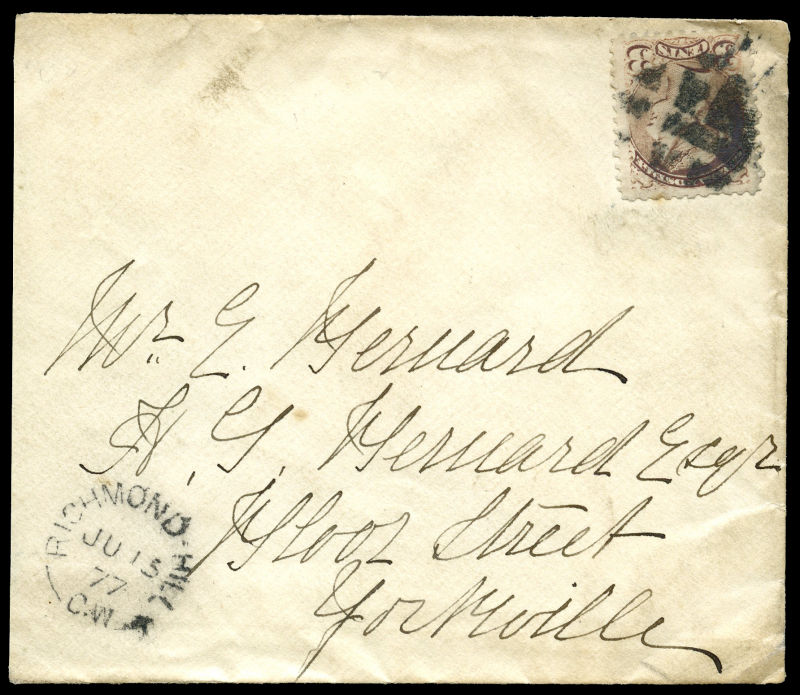 Mr. E. Bernard
H. G. Bernard Esqr
Bloor Street
Yorkville
RICHMOND-HILL
JU 15
77
C.W.